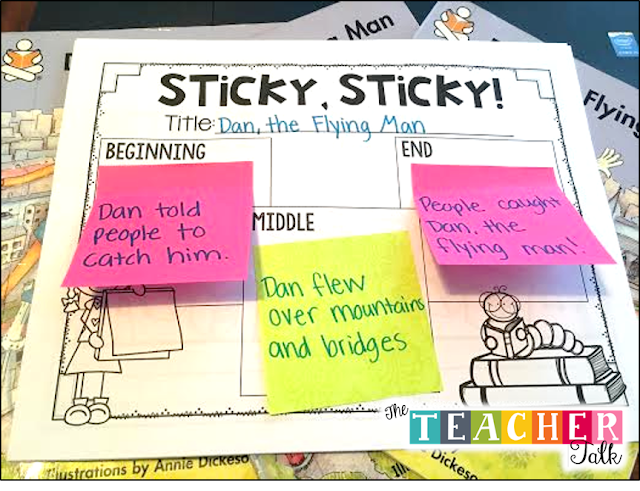 Man
Flying
STICKY, STICKY!
Title: Dan, the Flying Man
BEGINNING
END
Dan told
people to
catch him.
MIDDLE
People caught
Dan, the
flying man!
Dan flew
over mountains
and bridges
The
TEACHER
Talk
Illustrations by Annie Dickeso
Dickeso